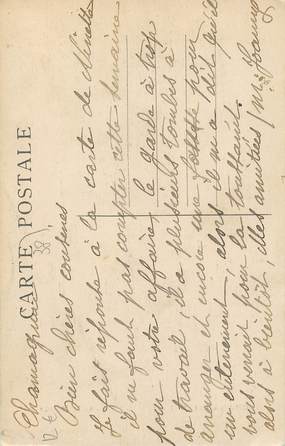 CARTE POSTALE
Chamagnieu (38)
Bien chères cousines,
Je fais réponse à la carte de Ninette
il ne faut pas compter cette semaine
pour votre affaire, le garde à trop
de travail, il a plusieurs tombes à
arranger et encore une fossette pour
un enterrement, alors il m'a dit qu'il
vous venait pour la toussaint.
alors à bientôt, mes amitiées